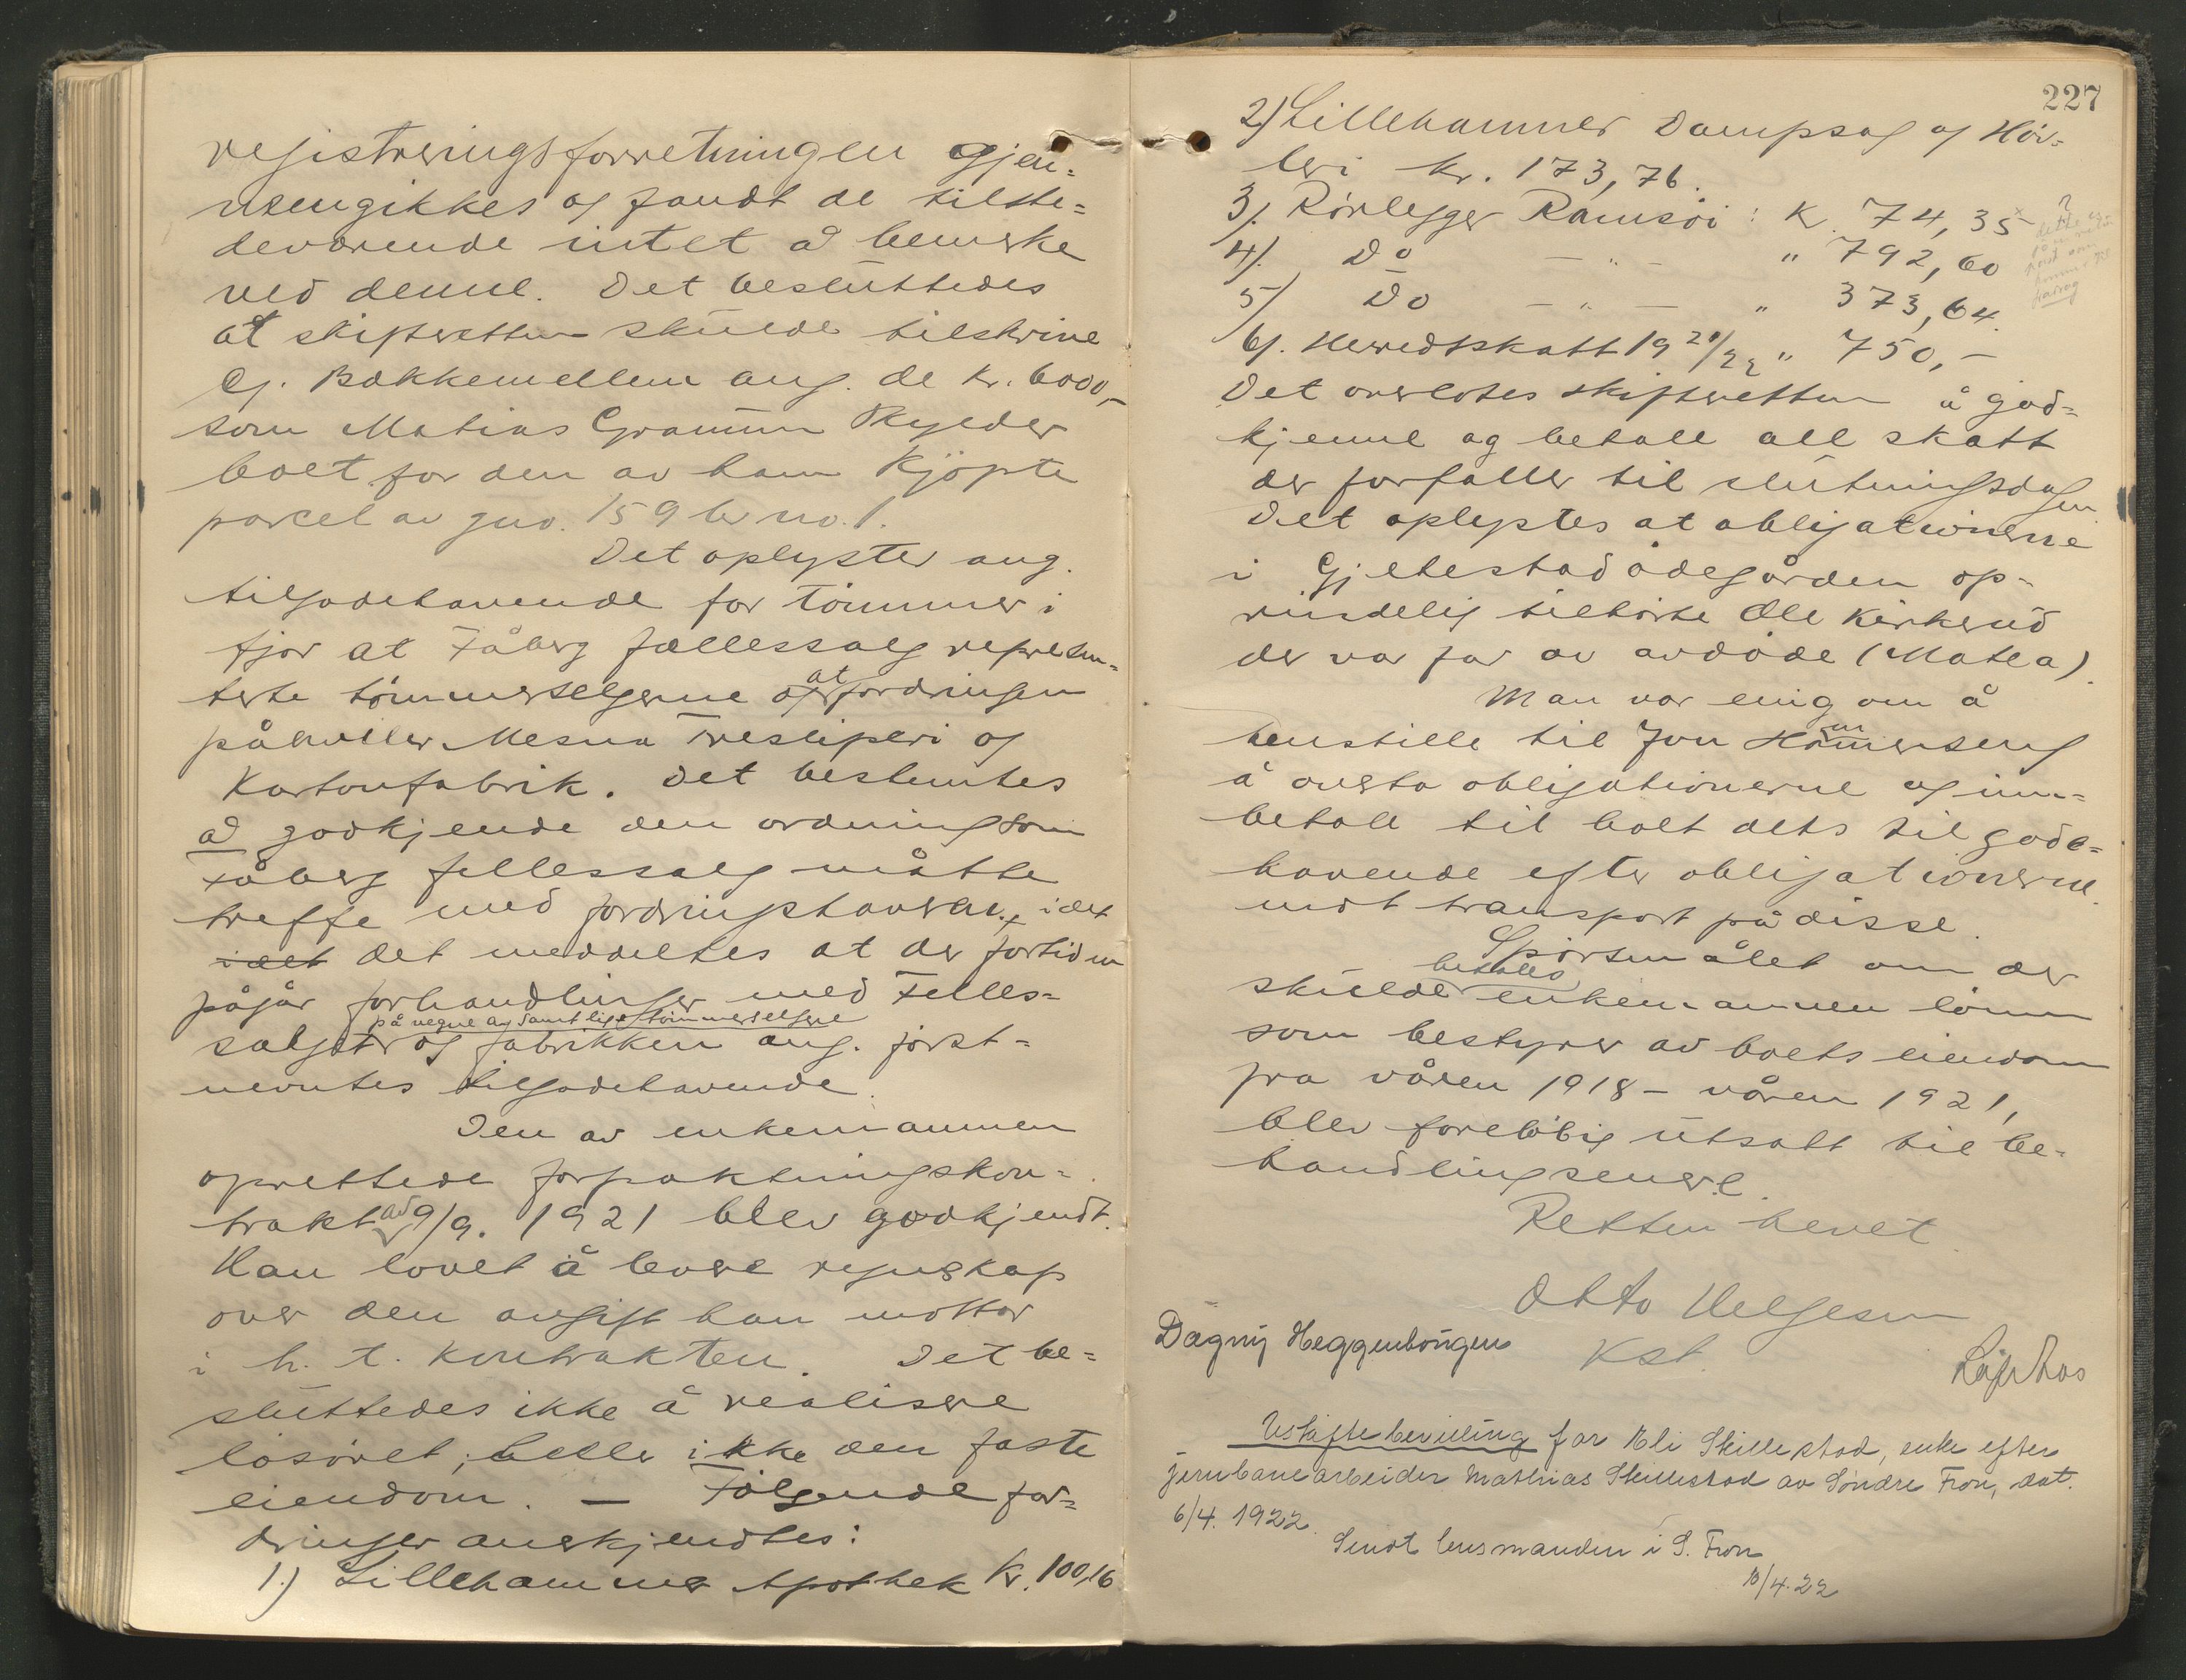 registreringsforretningen gjen-
nemgikkes og fandt de tilste-
deværende intet å bemerke
ved denne. Det besluttedes
at skifteretten skulde tilskrive
Bakkemellem ang. de kr. 6000,-
som Matias Grammen skylder
boet for den av ham kjöpte
parcel av gno. 159 br no. 1.
Det oplystes ang.
tilgodehavende for tömmer i
fjor at Fåberg fællessalg represen-
terte tömmerselgerne at fordringen
påhviler Mesna Træsliperi og
Kartonfabrik. Det bestemtes
å godkjende den ordning som
Fåberg fellessalg måtte
treffe med fordringshaverne, idet
idet det meddeltes at der fortiden
pågår forhandlinger med Felles-
på vegne av samtlige tömmerselgere
salget og fabrikken ang. först-
nevntes tilgodehavende.
Den av enkemannen
oprettede forpaktningskon-
trakt av 9/9. 1921 blev godkjendt.
Han lovet å levere regnskap
over den avgift han mottar
i h. t. kontrakten. Det be-
sluttedes ikke å realisere
lösöret; heller ikke den faste
eiendom. — Fölgende for-
dringer anerkjendtes:
1.) Lillehammer Apothek kr. 100,16
227
2) Lillehammer Dampsag og Höv-
leri kr. 173,76.
3). Rörlegger Ramsöi: Kr. 74,35
4). Do — " — " 792,60
5) Do — " — " 373,64.
6). Herredskatt 19 21/22 " 750,-
Det overlotes skifteretten å god-
kjenne og betale all skatt
der forfaller til slutningsdagen
Det oplystes at obligationerne
i Gjeltestadödegården op-
rindelig tilhörte Ole Kirkerud
der var far av avdöde (Matea).
Man var enig om å
henstille til Jon Hammerseng
å overta obligationerne og inn-
betale til boet dets tilgode-
havende efter obligationerne
mot transport på disse.
Spörsmålet om der
betales
skulde enkemannen lönn
som bestyrer av boets eiendom
fra våren 1918 – våren 1921,
blev forelöbig utsatt til be-
handling senere.
Retten hevet.
Otto Helgesen
Kst.
Dagny Heggenhougen
Uskiftebevilling for Eli Skillestad, enke efter
jernbanearbeider Mathias Skillestad av Söndre Fron, dat.
6/4. 1922.
Sendt lensmanden i S. Fron
10/4.22